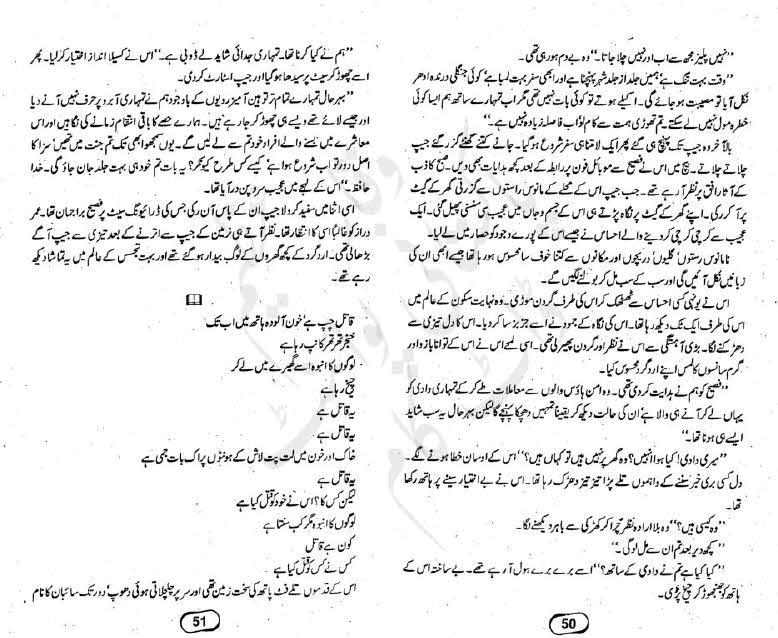 ”نہیں پلیز مجھ سے اب اور نہیں چلا جاتا۔“ وہ بے دم ہو رہی تھی۔
”وقت بہت تنگ ہے ہمیں جلد از جلد شہر پہنچنا ہے اور ابھی سفر بہت لمبا ہے‘ کوئی جنگلی درندہ ادھر
نکل آیا تو مصیبت ہو جائے گی۔ اکیلے ہوتے تو کوئی بات نہیں تھی مگر اب تمہارے ساتھ ہم ایسا کوئی
خطرہ مول نہیں لے سکتے۔ تم تھوڑی ہمت سے کام لو اب فاصلہ زیادہ نہیں ہے۔“
بالآخر وہ جیپ تک پہنچ ہی گئے پھر ایک لامتناہی سفر شروع ہو گیا۔ جانے کتنے گھنٹے گزر گئے جیپ
چلاتے چلاتے۔ بیچ میں اس نے فصیح سے موبائل فون پر رابطہ کے بعد کچھ ہدایات بھی دیں۔ صبح کاذب
کے آثار افق پر نظر آ رہے تھے۔ جب جیپ اس کے محلے کے مانوس راستوں سے گزرتی گھر کے گیٹ
پر آ کر رکی۔ اپنے گھر کے گیٹ پر نگاہ پڑتے ہی اس کے جسم و جاں میں عجیب سی سنسنی پھیل گئی۔ ایک
عجیب سے کرچی کرچی کر دینے والے احساس نے جیسے اس کے پورے وجود کو حصار میں لے لیا۔
نامانوس رستوں‘ گلیوں‘ دریچوں اور مکانوں سے کتنا خوف سا محسوس ہو رہا تھا جیسے ابھی ان کی
زبانیں نکل آئیں گی اور سب کے سب مل کر بولنے لگیں گے۔
اس نے یونہی کسی احساس سے ٹھٹھک کر اس کی طرف گردن موڑی۔ وہ نہایت سکون کے عالم میں
اس کی طرف ایک ٹک دیکھ رہا تھا۔ اس کی نگاہ کے جمود نے اسے جزبز سا کر دیا۔ اس کا دل تیزی سے
دھڑکنے لگا۔ بڑی آہستگی سے اس نے نظر اور گردن پھیر لی تھی۔ اسی لمحے اس نے اس کے توانا بازو اور
گرم سانسوں کا لمس اپنے ارد گرد محسوس کیا۔
”فصیح کو ہم نے ہدایت کر دی تھی۔ وہ امن ہاؤس والوں سے معاملات طے کر کے تمہاری دادی کو
یہاں لے کر آنے ہی والا ہے‘ ان کی حالت دیکھ کر یقیناً تمہیں دھچکا پہنچے گا لیکن بہر حال یہ سب شاید
ایسے ہی ہونا تھا۔“
”میری دادی! کیا ہوا انہیں؟ وہ گھر پر نہیں ہیں تو کہاں ہیں؟“ اس کے اوسان خطا ہونے لگے۔
دل کسی بری خبر سننے کے واہموں تلے پڑا تیز تیز دھڑک رہا تھا۔ اس نے بے اختیار سینے پر ہاتھ رکھا
تھا۔
”وہ کیسی ہیں؟“ وہ بلا ارادہ نظر چرا کر کھڑکی سے باہر دیکھنے لگا۔
”کچھ دیر بعد تم ان سے مل لو گی۔“
”کیا کیا ہے تم نے دادی کے ساتھ؟“ اسے برے برے ہول آ رہے تھے۔ بے ساختہ اس کے
ہاتھ کو جھنجھوڑ کر چیخ پڑی۔
50
”ہم نے کیا کرنا تھا۔ تمہاری جدائی شاید لے ڈوبی ہے۔“ اس نے کسیلا انداز اختیار کر لیا۔ پھر
اسے چھوڑ کر سیٹ پر سیدھا ہو گیا اور جیپ اسٹارٹ کر دی۔
”بہر حال تمہارے تمام تر توہین آمیز رویوں کے باوجود ہم نے تمہاری آبرو پر حرف نہیں آنے دیا
اور جیسے لائے تھے ویسے ہی چھوڑ کر جا رہے ہیں۔ ہمارے حصے کا باقی انتقام زمانے کی نگاہیں اور اس
معاشرے میں بسنے والے افراد خود تم سے لے لیں گے۔ یوں سمجھو ابھی تک تم جنت میں تھیں‘ سزا کا
اصل دور تو اب شروع ہوا ہے‘ کیسے کس طرح کیونکر؟ یہ بات تم خود ہی بہت جلد جان جاؤ گی۔ خدا
حافظ۔“ اس کے لہجے میں عجیب سرد پن در آیا تھا۔
اسی اثنا میں سفید کرولا جیپ کے پاس آن رکی جس کی ڈرائیونگ سیٹ پر فصیح براجمان تھا۔ عمر
دراز کو غالباً اسی کا انتظار تھا۔ نظر آتے ہی زمین کے جیپ سے اترنے کے بعد تیزی سے جیپ آگے
بڑھا لی تھی۔ ارد گرد کے کچھ گھروں کے لوگ بیدار ہو گئے تھے اور بہت تجسس کے عالم میں یہ تماشا دیکھ
رہے تھے۔
قاتل چپ ہے‘ خون آلودہ ہاتھ میں اب تک
خنجر تھر تھر کانپ رہا ہے
لوگوں کا انبوہ اسے گھیرے میں لے کر
چیخ رہا ہے
یہ قاتل ہے
یہ قاتل ہے
خاک اور خون میں لت پت لاش کے ہونٹوں پر اک بات جمی ہے
یہ قاتل ہے
لیکن کس کا؟ اس نے خود کو قتل کیا ہے
لوگوں کا انبوہ مگر کب سنتا ہے
کون ہے قاتل
کس نے کس کو قتل کیا ہے
اس کے قدموں تلے فٹ پاتھ کی سخت زمین تھی اور سر پر چلچلاتی ہوئی دھوپ‘ دور تک سائبان کا نام
51